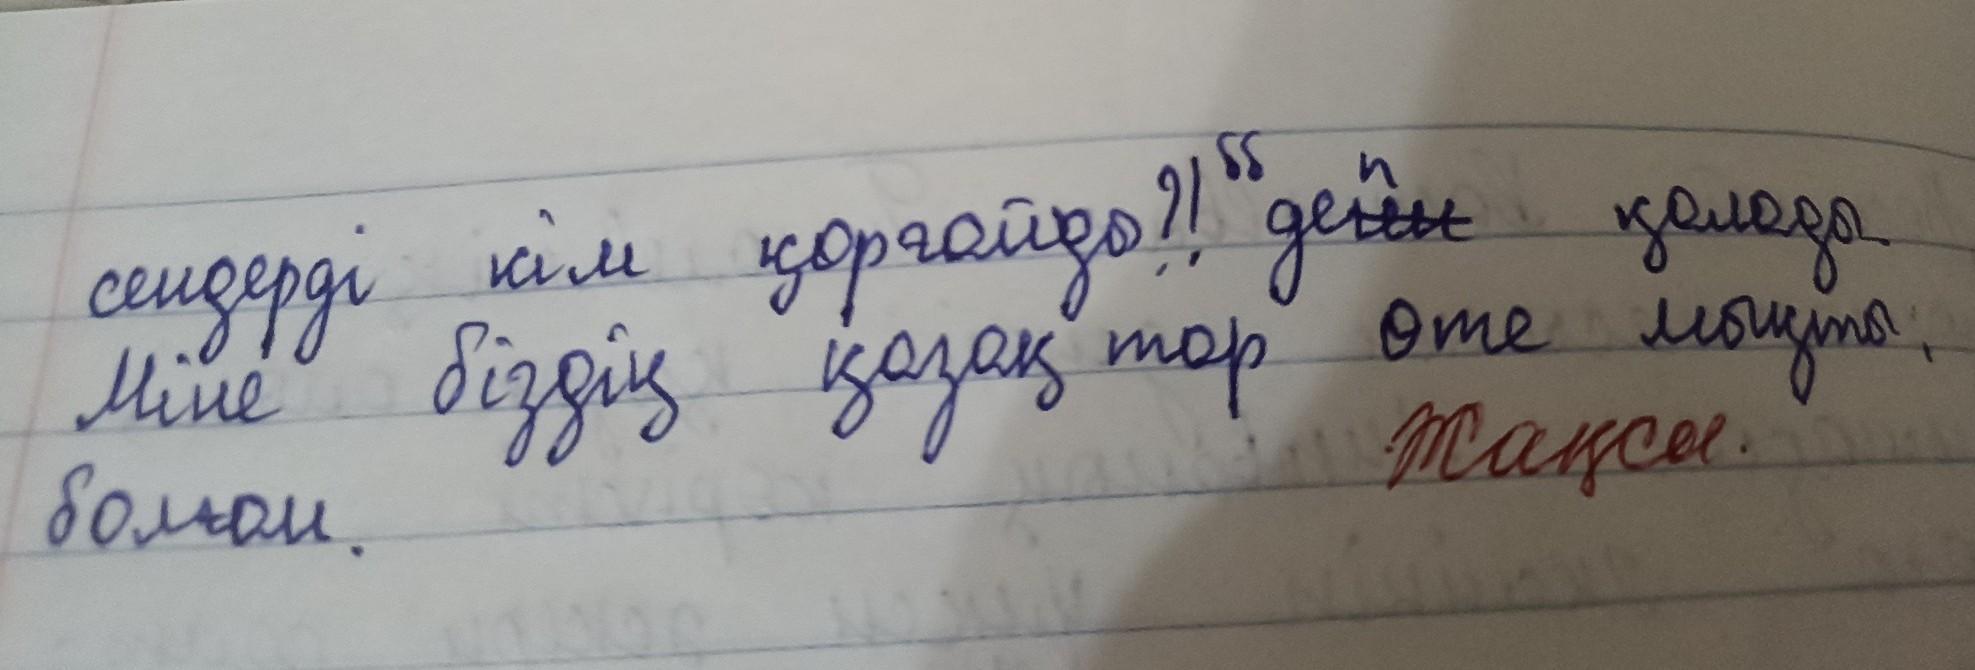 сендерді кім қорғайды?!" деп қалады
Міне біздің қазақтар өте мықты.
Жақсы.
болған.